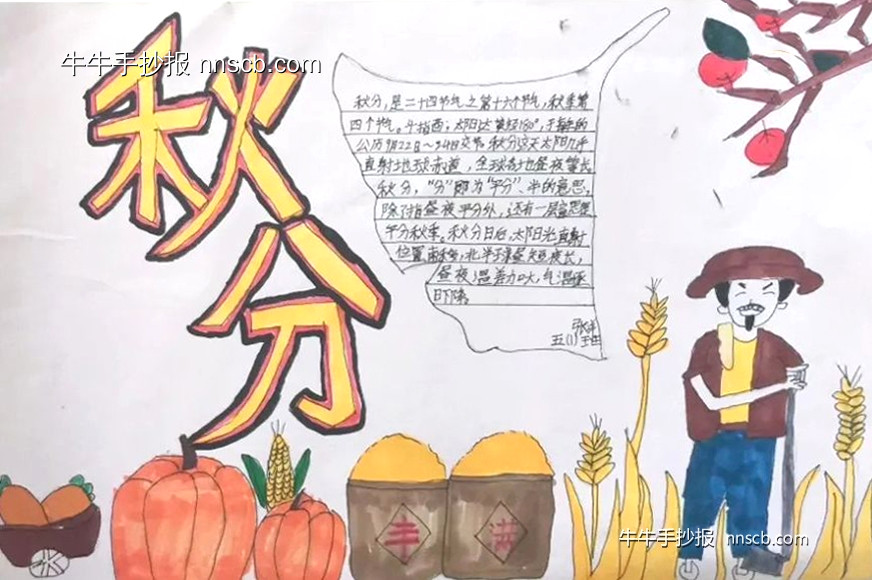 牛牛手抄报 nnscb.com
秋分
秋分,是二十四节气之第十六个节气,秋季第
四个节气。斗指酉;太阳达黄经180°,于每年的
公历9月22日~24日交节。秋分这天太阳几乎
直射地球赤道,全球各地昼夜等长。
秋分,“分”即为“平分”、半的意思,
除了指昼夜平分外,还有一层意思是
平分秋季。秋分日后,太阳光直射
位置南移,北半球昼短夜长,
昼夜温差加大,气温逐
日下降。
五(1)班
丰 满
牛牛手抄报 nnscb.com